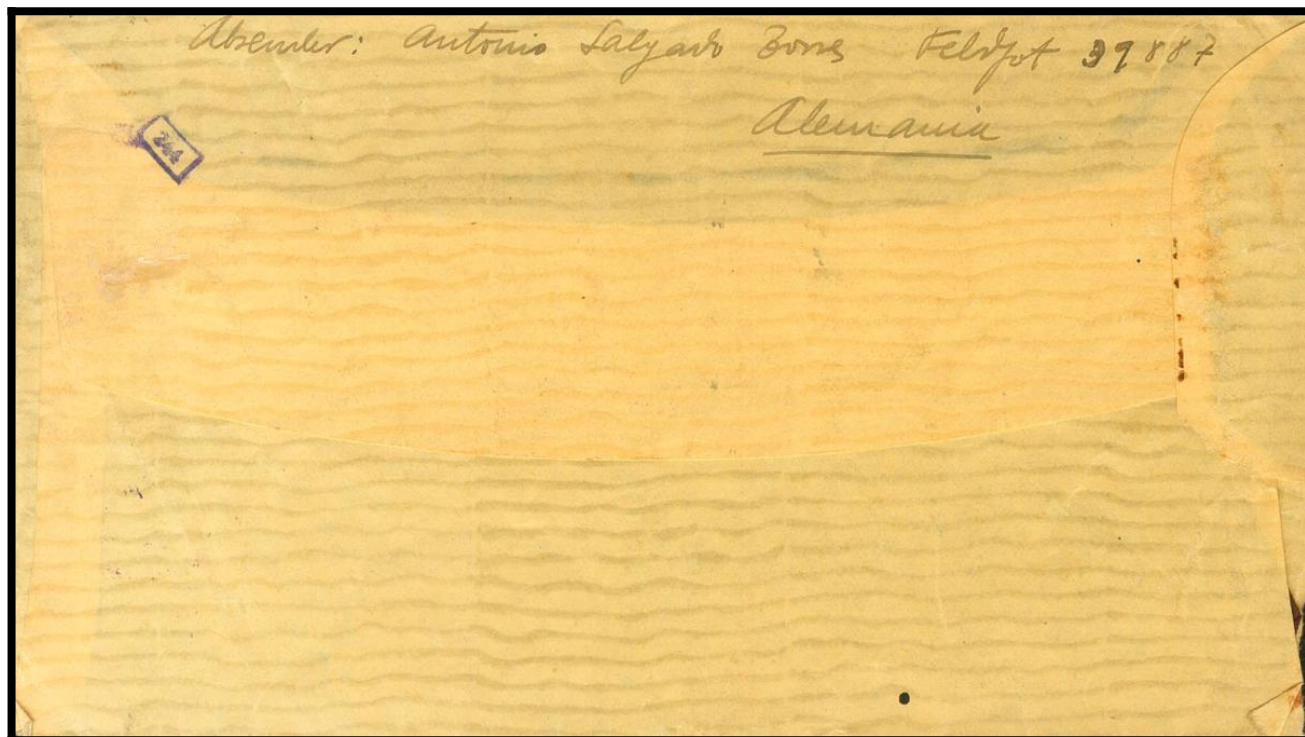 Absender: Antonio Salgado Borres Feldpot 39887
Alemania
244